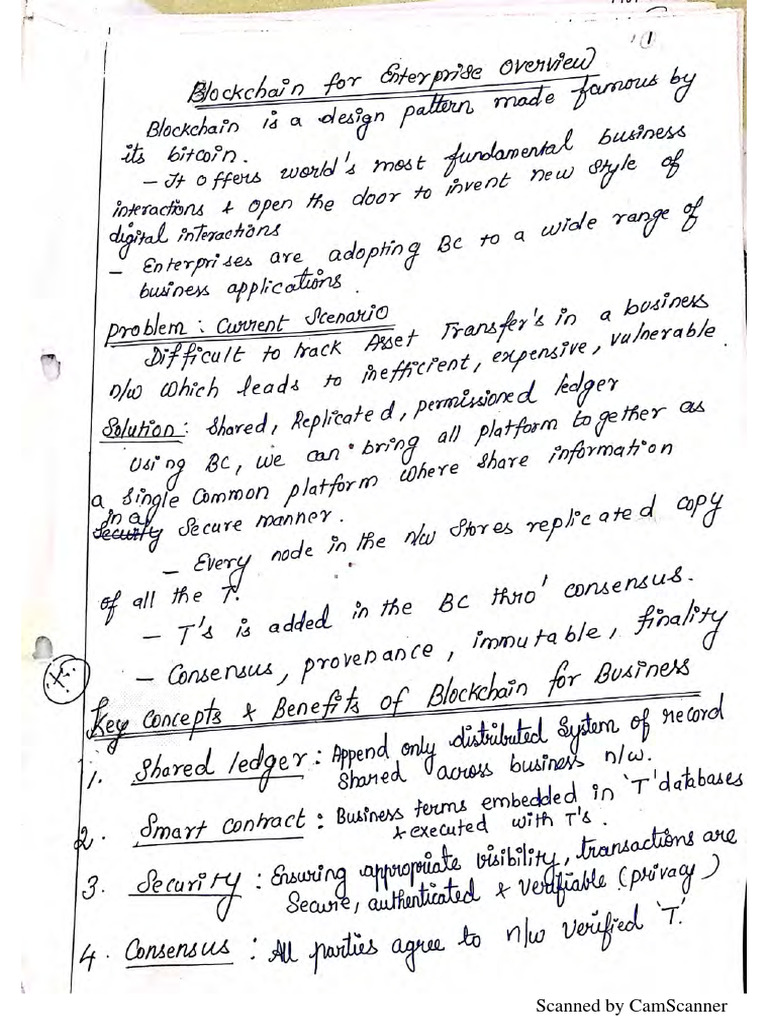 1
Blockchain for Enterprise Overview
Blockchain is a design pattern made famous by
its bitcoin.
- It offers world's most fundamental business
interactions & open the door to invent new style of
digital interactions
- Enterprises are adopting BC to a wide range of
business applications.
Problem: Current Scenario
Difficult to track Asset Transfer's in a business
n/w which leads to inefficient, expensive, vulnerable.
Solution: Shared, Replicated, permissioned ledger
Using BC, we can bring all platform together as
a single common platform where share information
in a
Security Secure manner.
- Every node in the n/w stores replicated copy
of all the T.
- T's is added in the BC thro' consensus.
- Consensus, provenance, immutable, finality
Key Concepts & Benefits of Blockchain for Business
1. Shared ledger: Append only distributed System of record
Shared across business n/w.
2. Smart contract: Business terms embedded in 'T' databases
& executed with T's.
3. Security: Ensuring appropriate visibility, transactions are
Secure, authenticated & verifiable (privacy)
4. Consensus: All parties agree to n/w verified 'T'.
Scanned by CamScanner